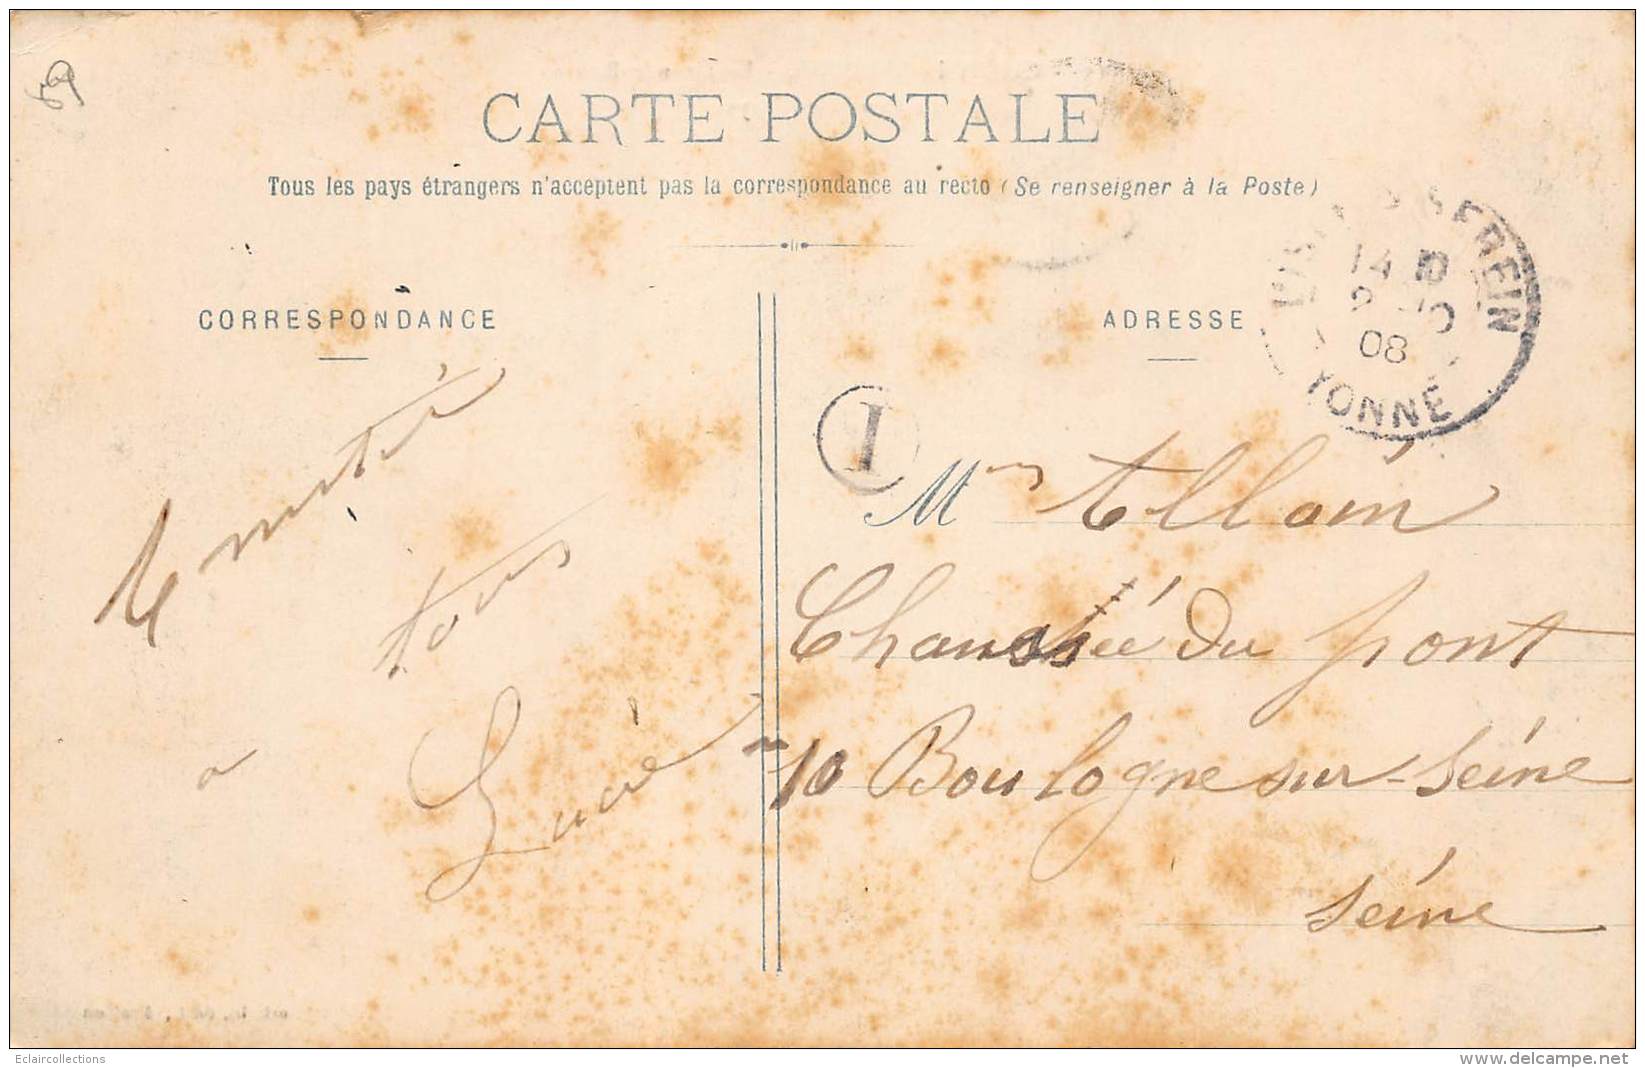 59
CARTE POSTALE
Tous les pays étrangers n'acceptent pas la correspondance au recto (Se renseigner à la Poste)
CORRESPONDANCE
ADRESSE
SEREIN
14
08
YONNE
I
Amitié
à tous
Lucie
M Allain
Chaussée du pont
10 Boulogne sur-Seine
Seine
Eclaircollections
www.delcampe.net